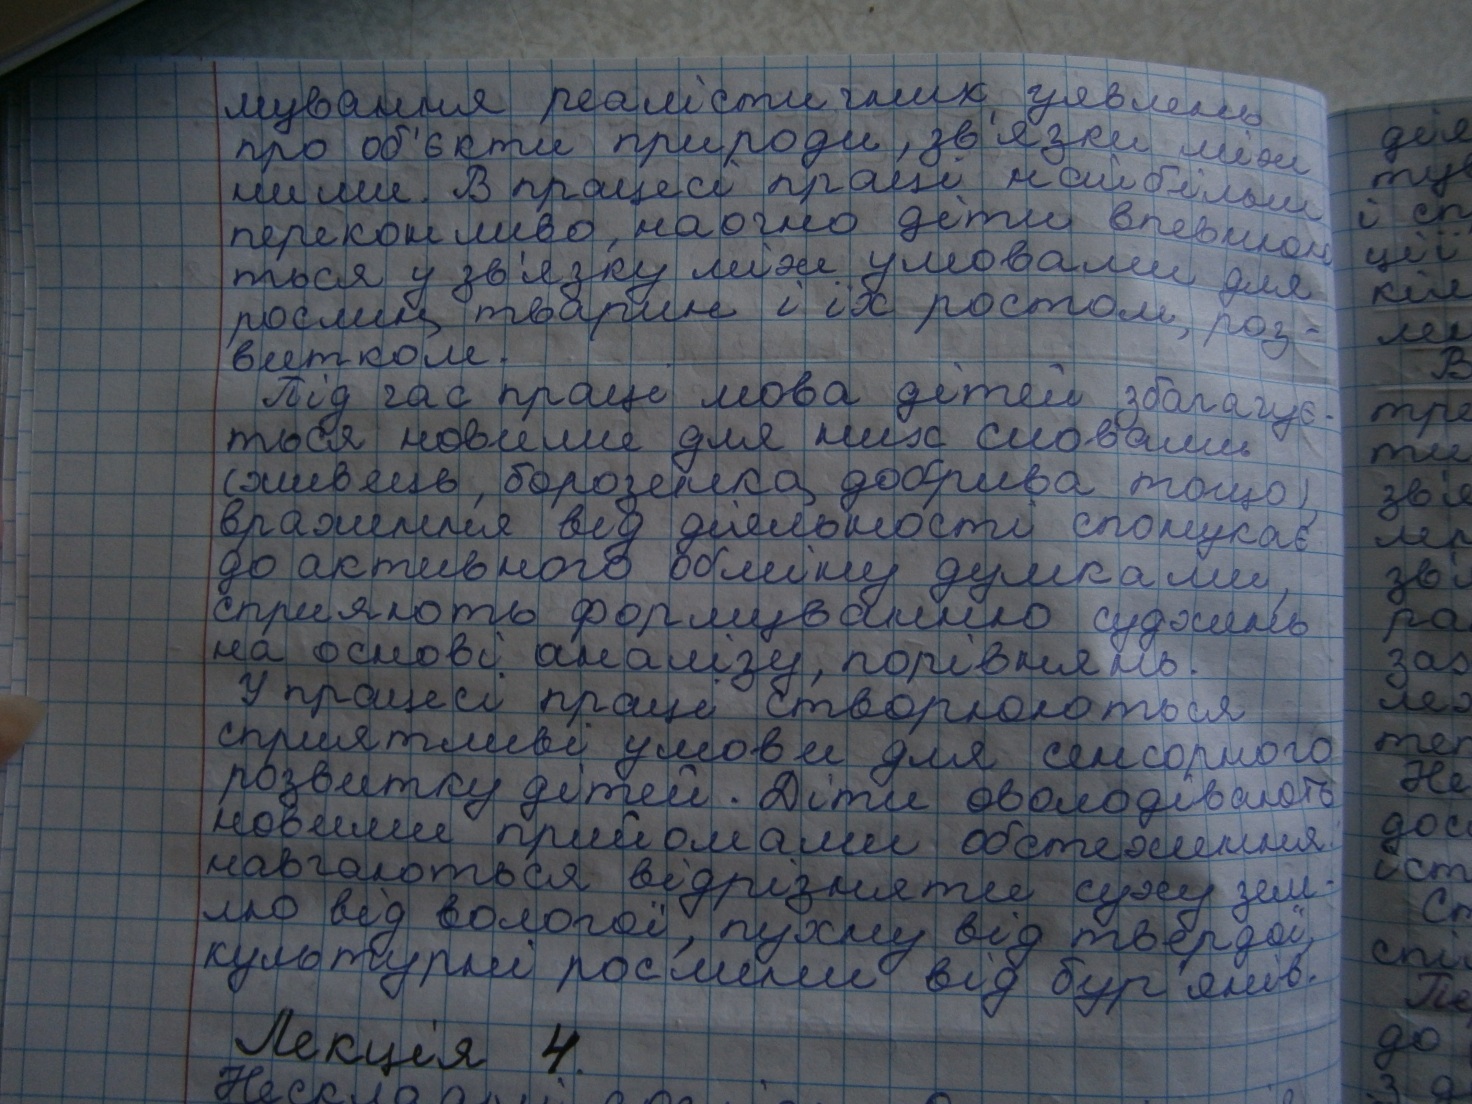 мування реалістичних уявлень
про об'єкти природи, зв'язки між
ними. В працесі праці найбільш
переконливо, наочно діти впевнюю
ться у зв'язку між умовами для
рослин, тварин і їх ростом, роз-
витком.
Під час праці мова дітей збагачує-
ться новими для них словами
(живець, борозенка, добрива тощо),
враження від діяльності спонукає
до активного обміну думками,
сприяють формуванню суджень
на основі аналізу, порівнянь.
У працесі праці створюються
сприятливі умови для сенсорного
розвитку дітей. Діти оволодівають
новими прийомами обстеження:
навчаються відрізняти суху зем-
лю від вологої, пухку від твердої,
культурні рослини від бур'янів.
Лекція 4.
дія
тув
і сп
ції
кіл
лен
В
тре
ти
зв'я
мр
зв'я
ра
заз
лех
теп
Не
дос
іст
Сп
спі
Пе
до
з д